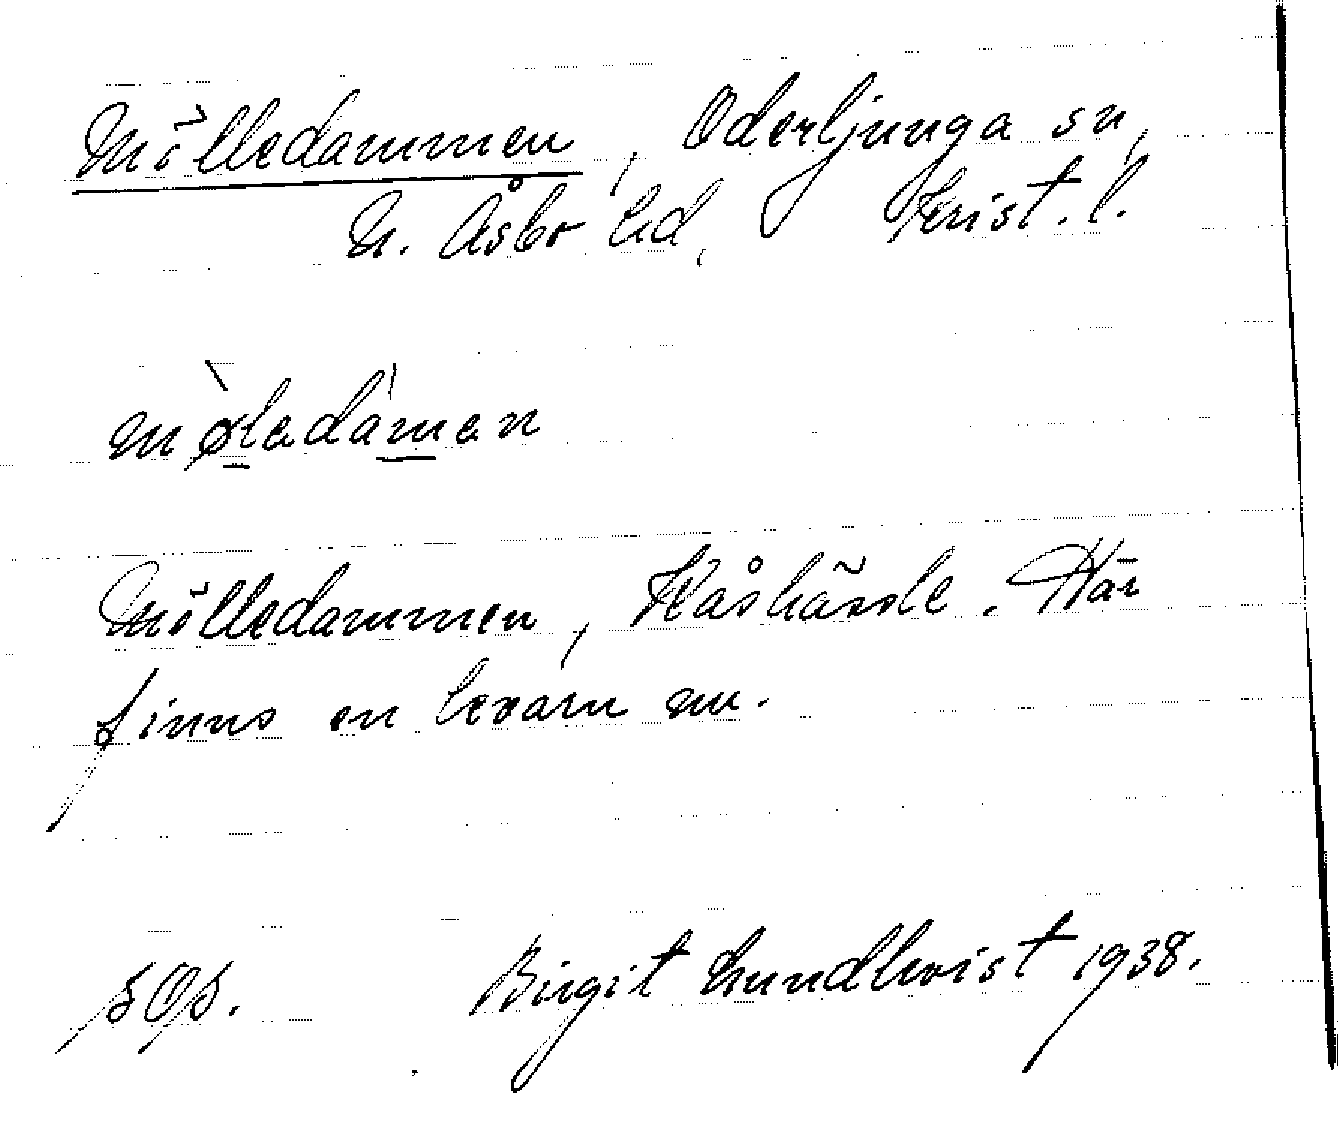 Mölledammen, Oderljunga sn,
N. Åsbo hd, Krist. l.
mø̀ladàman
Mölledammen, Kåshärle. Här
finns en kvarn nu.
Birgit Lundkvist 1938.